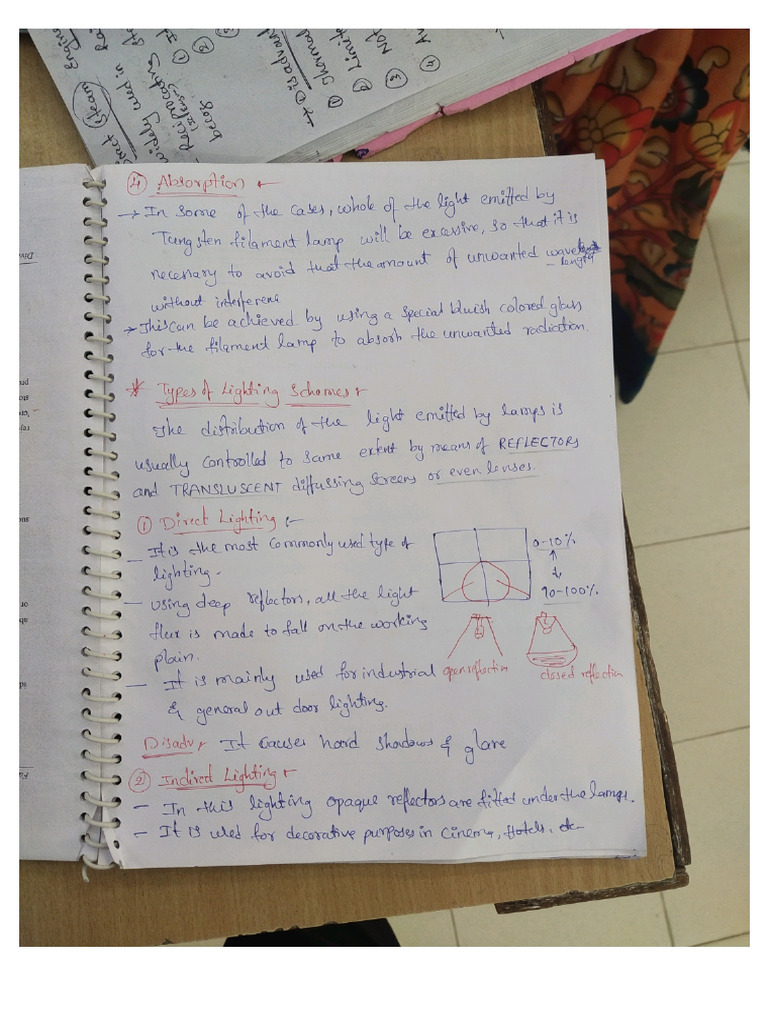 ④ Absorption :-
→ In some of the cases, whole of the light emitted by
Tungsten filament lamp will be excessive, so that it is
necessary to avoid that the amount of unwanted wave
- length
without interference
→ This can be achieved by using a special bluish colored glass
for the filament lamp to absorb the unwanted radiation.
* Types of Lighting Schemes :-
The distribution of the light emitted by lamps is
usually controlled to some extent by means of REFLECTORS
and TRANSLUSCENT diffussing screens or even lenses.
① Direct Lighting :-
- It is the most commonly used type of
lighting.
- using deep reflectors, all the light
flux is made to fall on the working
plain.
- It is mainly used for industrial
& general out door lighting.
0-10%
90-100%
open reflection
closed reflection
Disadv :- It causes hard shadows & glare
② Indirect Lighting :-
- In this lighting opaque reflectors are fitted under the lamps.
- It is used for decorative purposes in cinema, Hotels, etc
Engine
Steam
widely used in
Reciprocating
→ Disadvan
① Thermal
② Limit
③ Not
④ Av